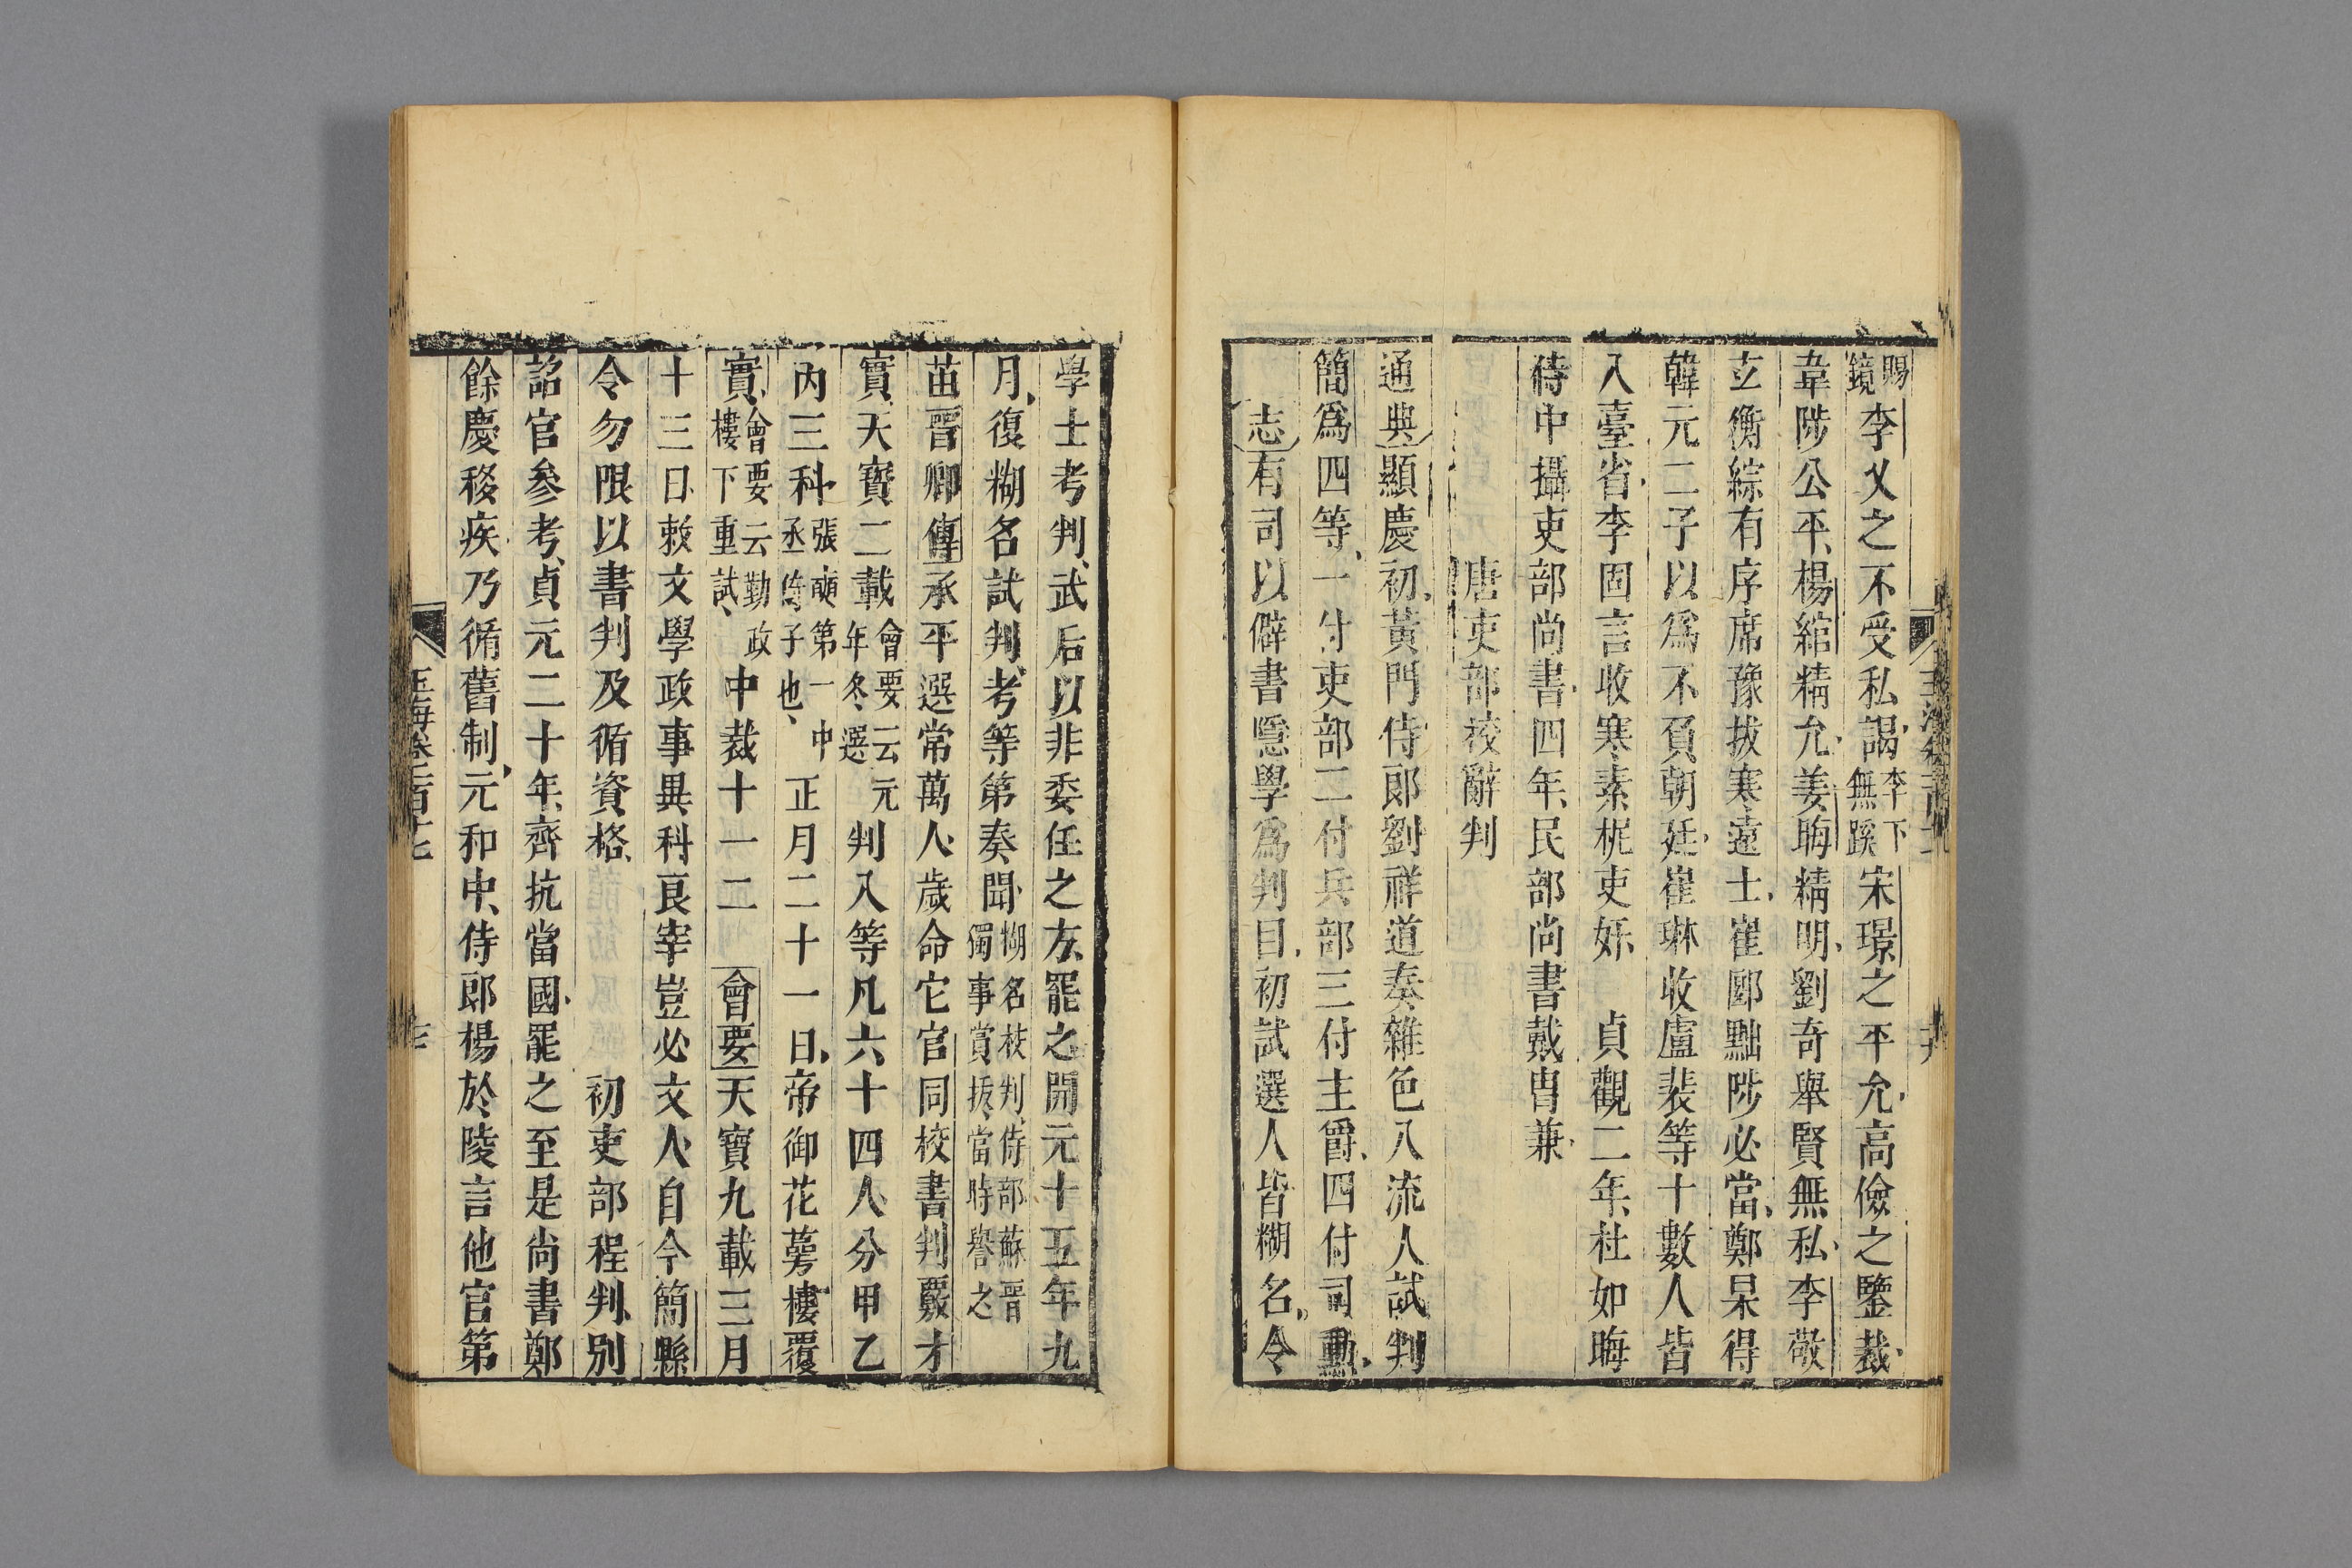 賜鏡李乂之不受私謁李下無蹊宋璟之平允高儉之鑒裁
韋陟公平楊綰精允姜晦精明劉奇舉賢無私李敬
玄衡綜有序席豫拔寒遠士崔郾黜陟必當鄭杲得
韓元二子以爲不負朝廷崔琳收盧裴等十數人皆
入臺省李固言收寒素柅吏奸　貞觀二年杜如晦
侍中攝吏部尚書四年民部尚書戴冑兼
唐吏部校辭判
通典顯慶初黃門侍郎劉祥道奏雜色入流人試判
簡爲四等一付吏部二付兵部三付主爵四付司勳
志有司以僻書隱學爲判目初試選人皆糊名令
學士考判武后以非委任之方罷之開元十五年九
月復糊名試判考等第奏聞糊名校判侍部蘇晉獨事賞拔當時譽之
苗晉卿傳承平選常萬人歲命它官同校書判覈才
實天寶二載會要云元年冬選判入等凡六十四人分甲乙
丙三科張奭第一中丞倚子也正月二十一日帝御花萼樓覆
實會要云勤政樓下重試中裁十一二　會要天寶九載三月
十三日敕文學政事異科良宰豈必文人自今簡縣
令勿限以書判及循資格　初吏部程判別
詔官參考貞元二十年齊抗當國罷之至是尚書鄭
餘慶移疾乃循舊制元和中侍郎楊於陵言他官第
玉海卷一百十七